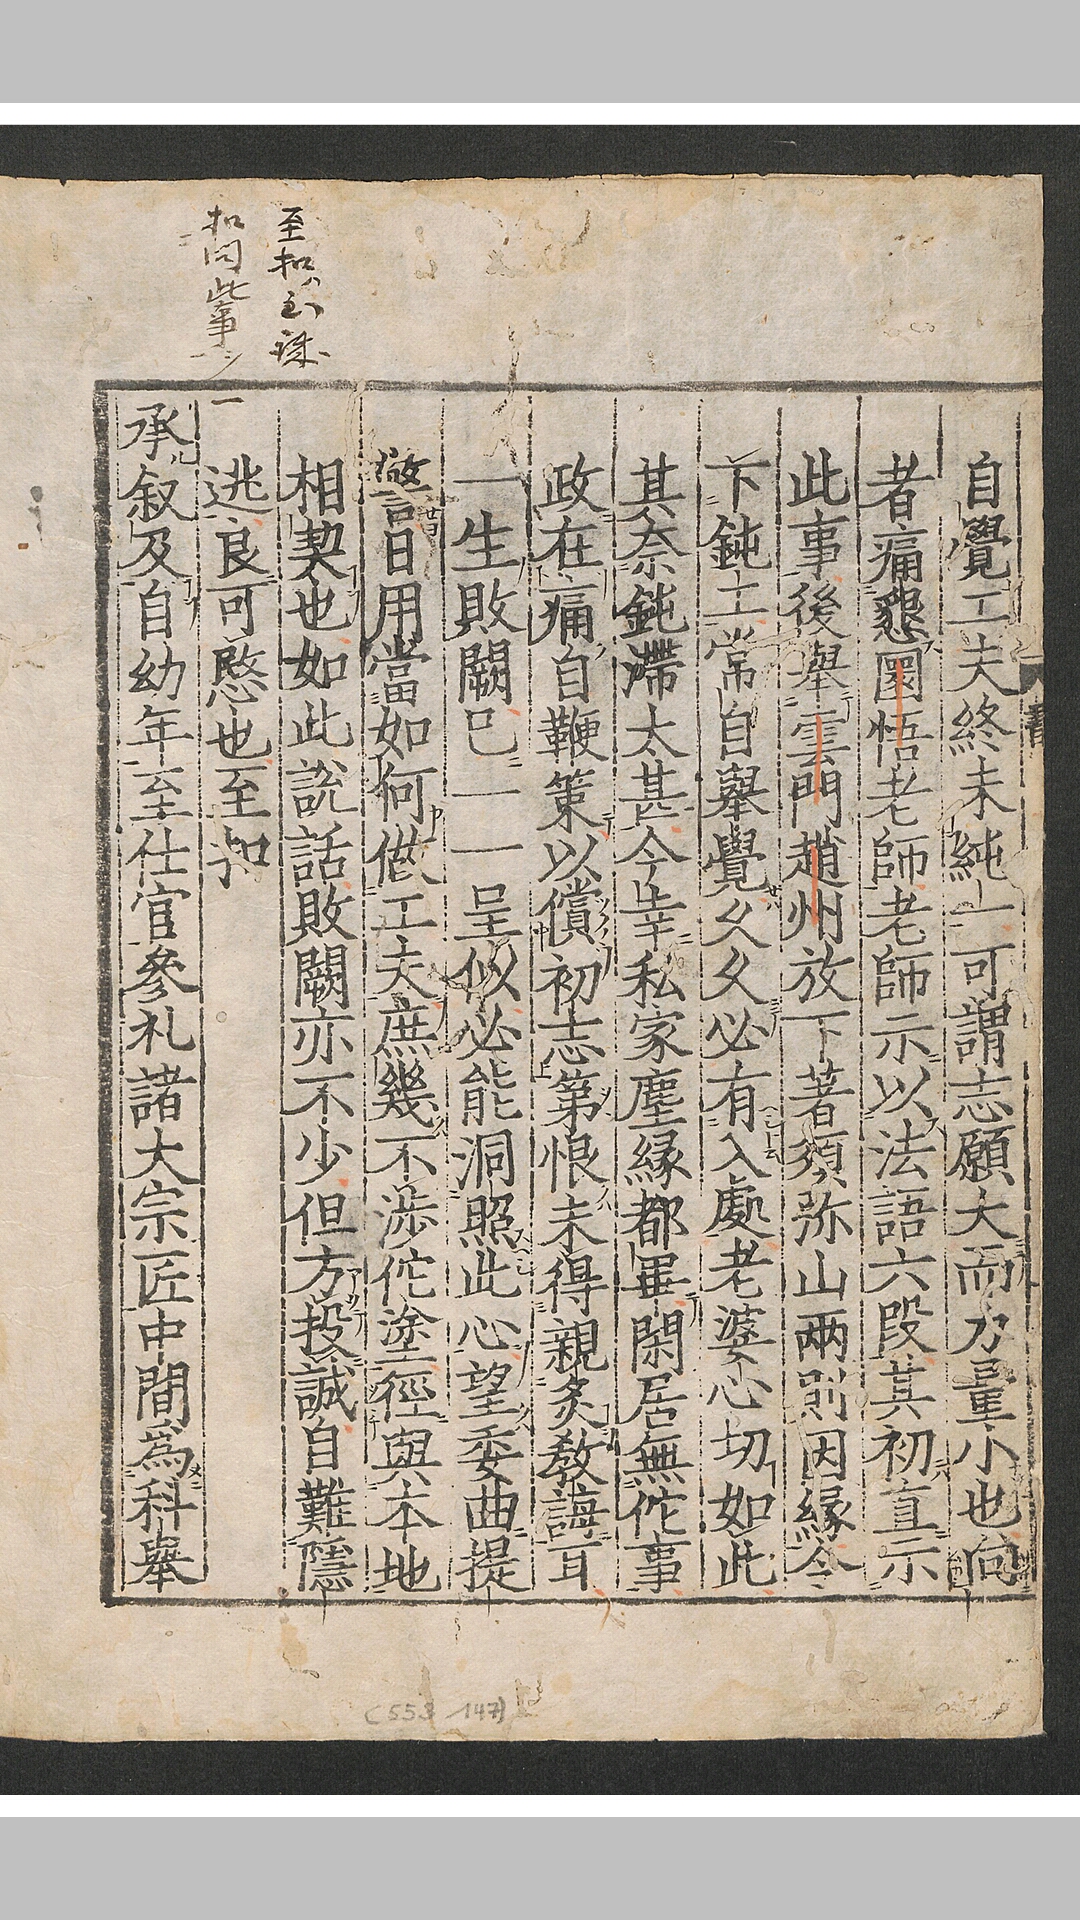 至扣ハ到誅
扣問此事ヽシ
自覺工夫終未純一可謂志願大而力量小也向
者痛懇圜悟老師老師示以法語六段其初直示
此事後舉雲門趙州放下著須弥山兩則因緣令
下鈍工常自舉覺久久必有入處老婆心切如此
其奈鈍滯太甚今幸私家塵緣都畢閑居無佗事
政在痛自鞭策以償初志第恨未得親炙敎誨耳
一生敗闕巳一一呈似必能洞照此心望委曲提
警日用當如何做工夫庶幾不涉佗塗徑與本地
相契也如此說話敗闕亦不少但方投誠自難隱
逃良可愍也至扣
承叙及自幼年至仕官參礼諸大宗匠中間爲科舉
(553 147)